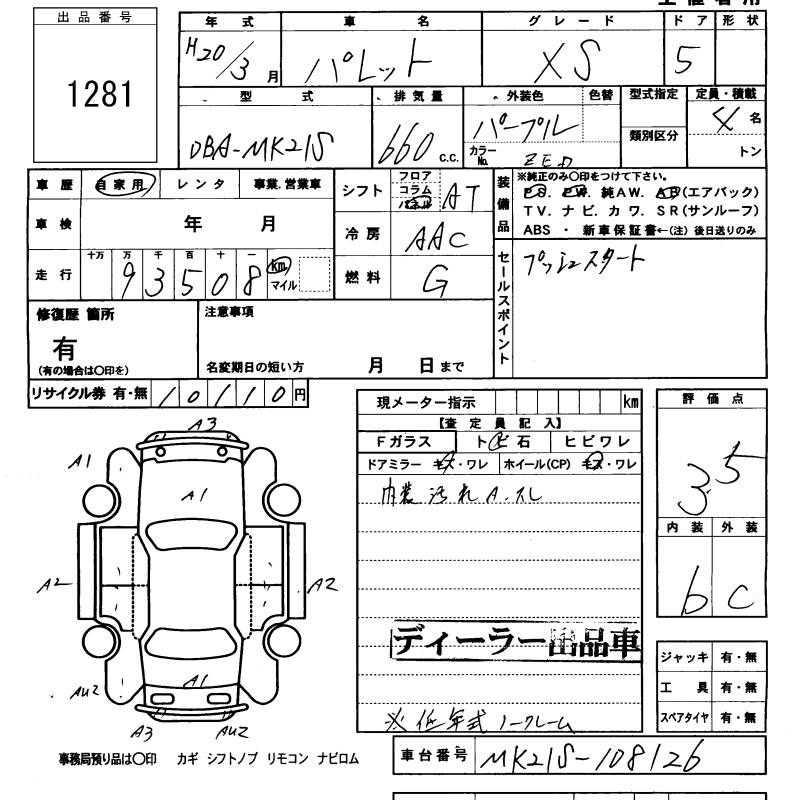 出品番号
1281
年式 車名 グレード ドア 形状
H20/3月 パレット XS 5
型式 排気量 外装色 色替 型式指定 定員・積載
DBA-MK21S 660 c.c. パープル 類別区分 4名
カラーNo. ZED トン
車歴 自家用 レンタ 事業.営業車
シフト フロア コラム パネル AT
装備品 ※純正のみ〇印をつけて下さい。
PS. PW. 純AW. AB(エアバック)
TV. ナビ. カワ. SR(サンルーフ)
ABS ・ 新車保証書←(注)後日送りのみ
車検 年 月
冷房 AAC
走行 十万 万 千 百 十 一
93508 km マイル
燃料 G
セールスポイント プッシュスタート
修復歴 箇所
有
(有の場合は〇印を)
注意事項
名変期日の短い方 月 日まで
リサイクル券 有・無 10110円
現メーター指示 km
【査定員記入】
Fガラス トビ石 ヒビワレ
ドアミラー キズ・ワレ ホイール(CP) キズ・ワレ
内装汚れA.スレ
ディーラー出品車
※低年式ノークレーム
評価点
3.5
内装 外装
b C
ジャッキ 有・無
工具 有・無
スペアタイヤ 有・無
A3
A1
A1
A2 A2
AU2
A1
A3 AU2
事務局預り品は〇印 カギ シフトノブ リモコン ナビロム
車台番号 MK21S-108126